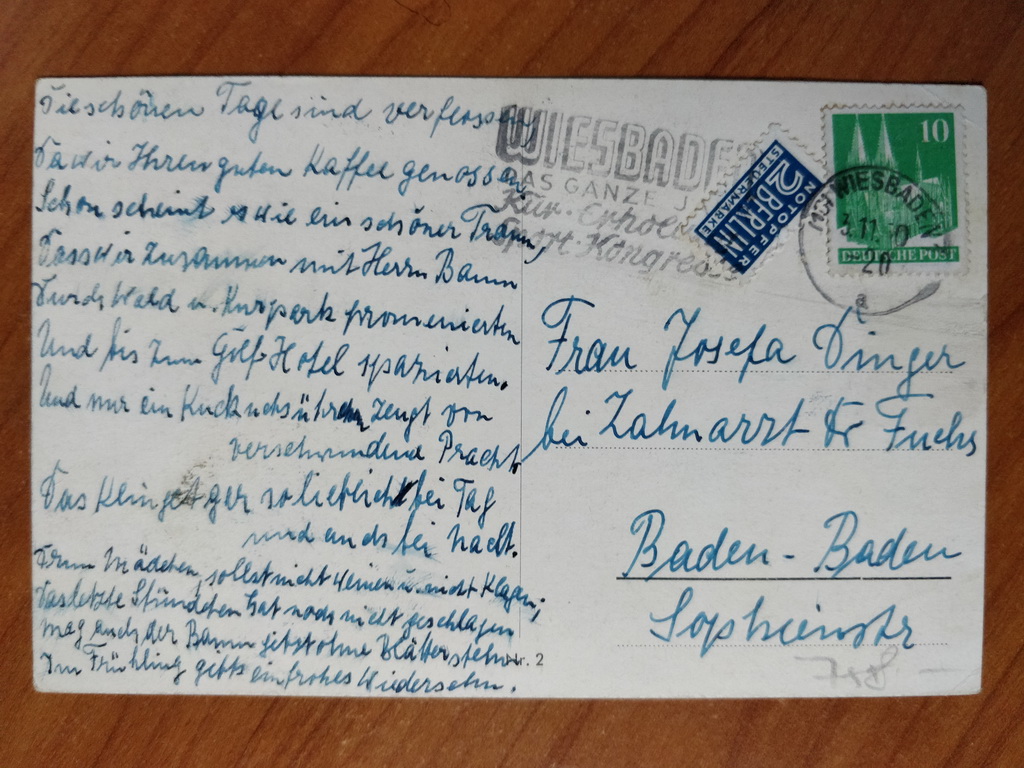 Die schönen Tage sind verflossen
Da wir Ihren guten Kaffee genossen
Schon scheint es wie ein schöner Traum,
Dass wir zusammen mit Herrn Baum
Durch Wald u. Kurpark promenierten
Und bis zum Golf-Hotel spazierten.
Und nur ein Kuckucksührchen zeugt von
verschwundene Pracht
Das klinget gar so lieblich bei Tag
und auch bei Nacht.
Drum Mädchen, sollst nicht weinen u. nicht klagen,
Das letzte Stündchen hat noch nicht geschlagen
Mag auch der Baum jetzt ohne Blätter stehn
Im Frühling gibts ein frohes Wiedersehn.
WIESBADE
DAS GANZE J
Kur · Erhol
Sport · Kongress
NOTOPFER
2 BERLIN
STEUERMARKE
10
DEUTSCHE POST
WIESBADEN
3.11.50
20
a
Frau Josefa Dinger
bei Zahnarzt Dr Fuchs
Baden-Baden
Sophienstr
Nr. 2